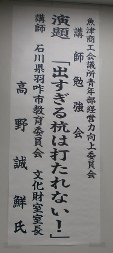 魚津商工会議所青年部経営力向上委員会
講師勉強会
演題 「出すぎる杭は打たれない！」
講師 石川県羽咋市教育委員会 文化財室室長
高野誠鮮氏